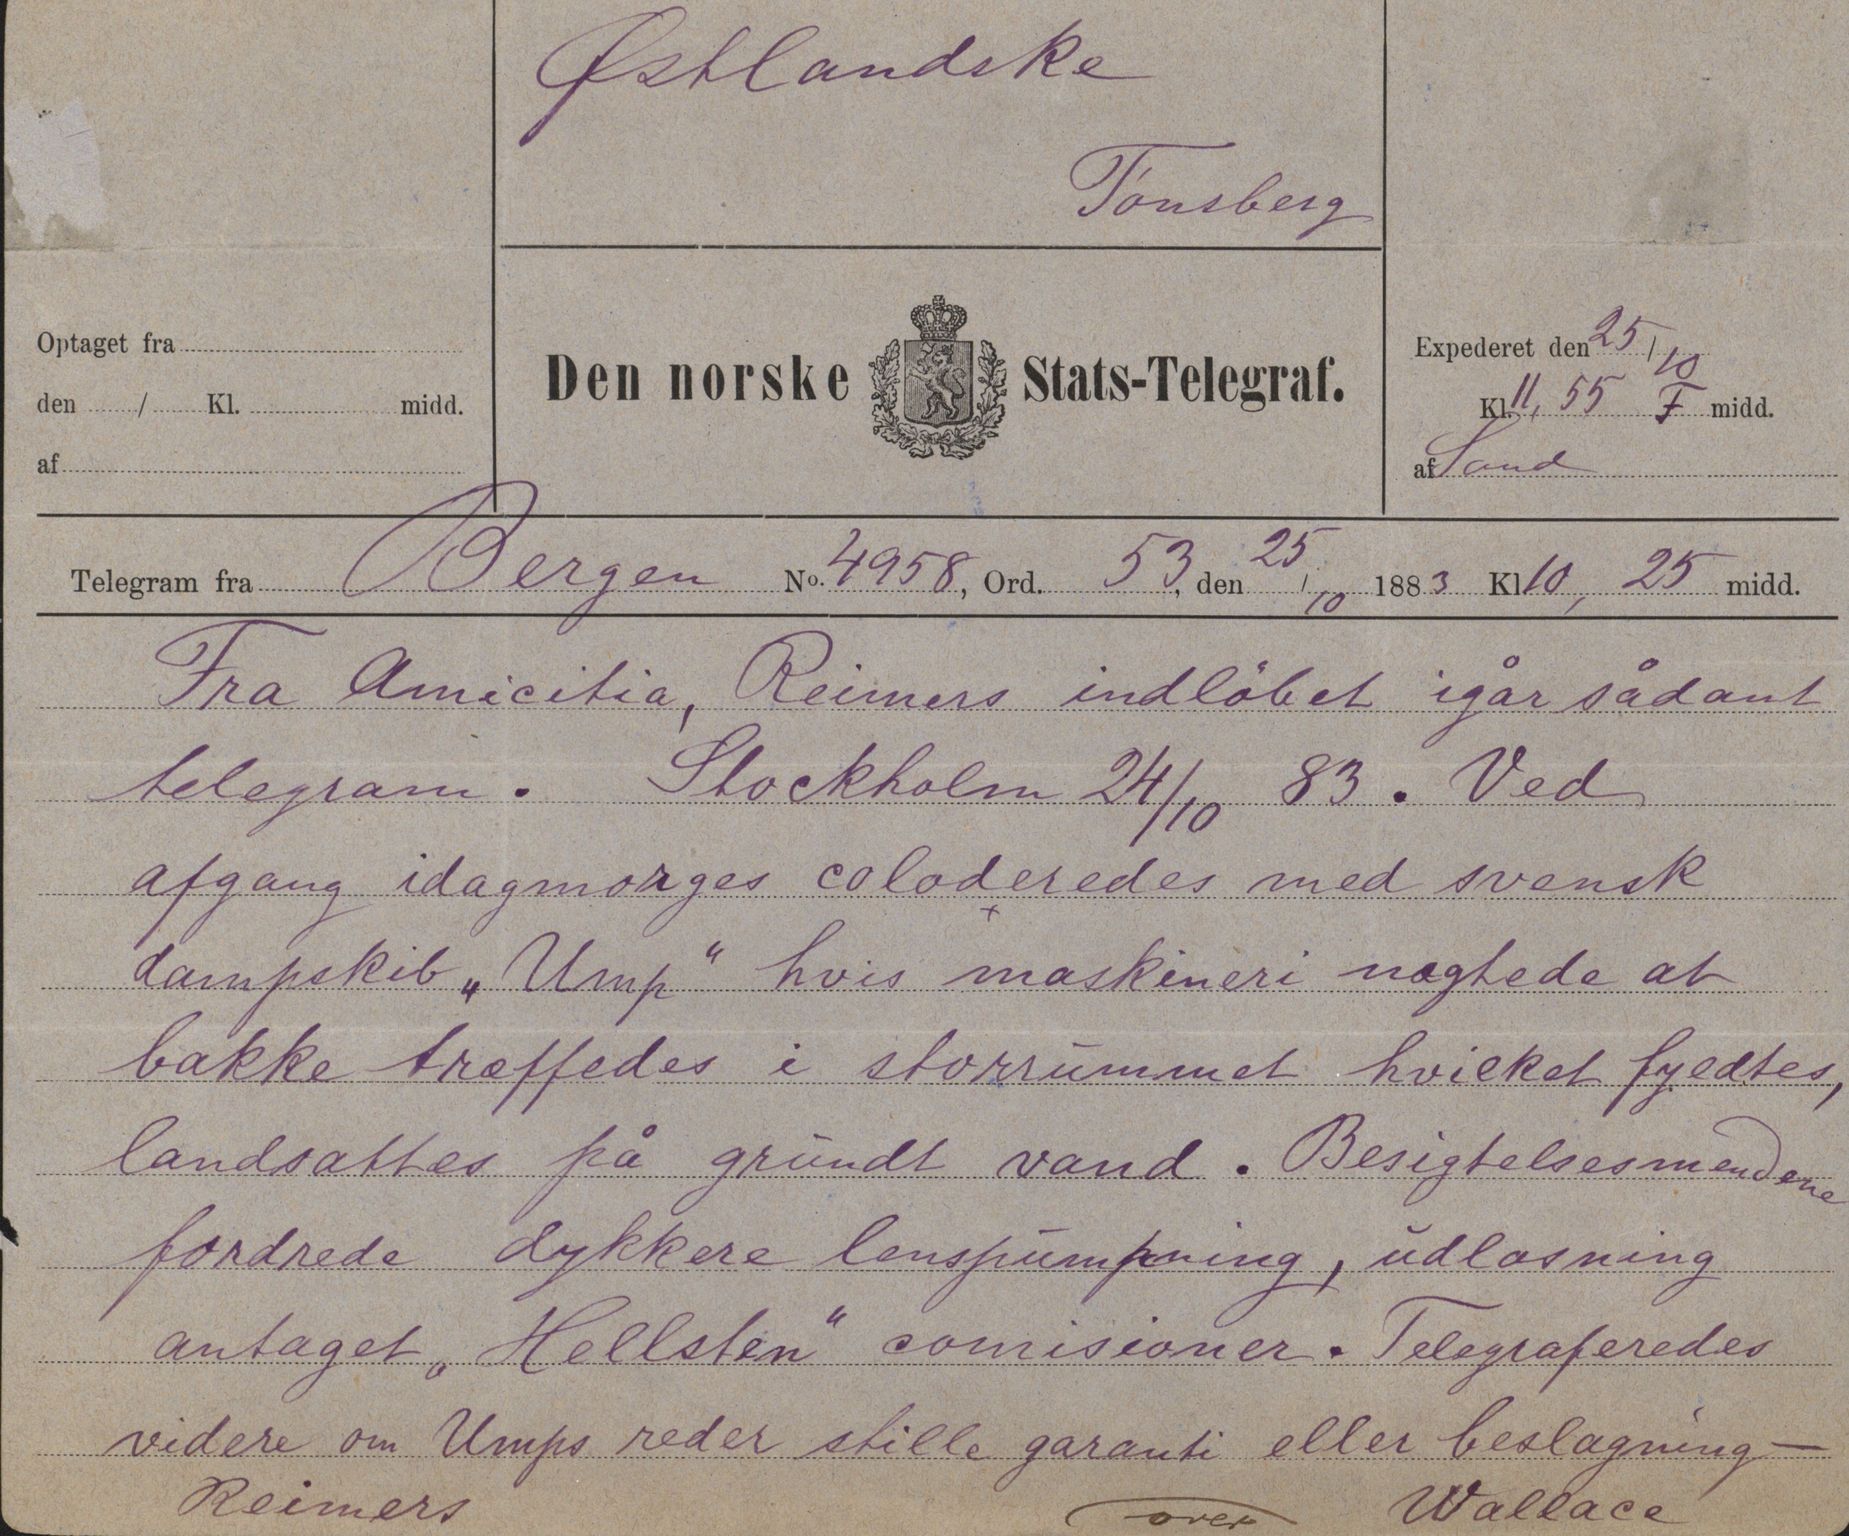 Østlandske
Tönsberg
Optaget fra
den / Kl. midd.
af
Den norske Stats-Telegraf.
Expederet den 25/10
Kl. 11,55 F midd.
af Sand
Telegram fra Bergen No. 4958, Ord. 53, den 25/10 1883 Kl 10,25 midd.
Fra Amicitia, Reimers indlöbet igår sådant
telegram. Stockholm 24/10 83. Ved
afgang idagmorges coloderedes med svensk
dampskib „Ump“ hvis maskineri nægtede at
bakke træffedes i storrummet hvilket fyldtes,
landsattes på grundt vand. Besigtelsesmendene
fordrede dykkere lenspumpning, udlosning
antaget „Hellsten“ comisioner. Telegraferedes
videre om Umps reder stille garanti eller beslagning—
Reimers over Wallace